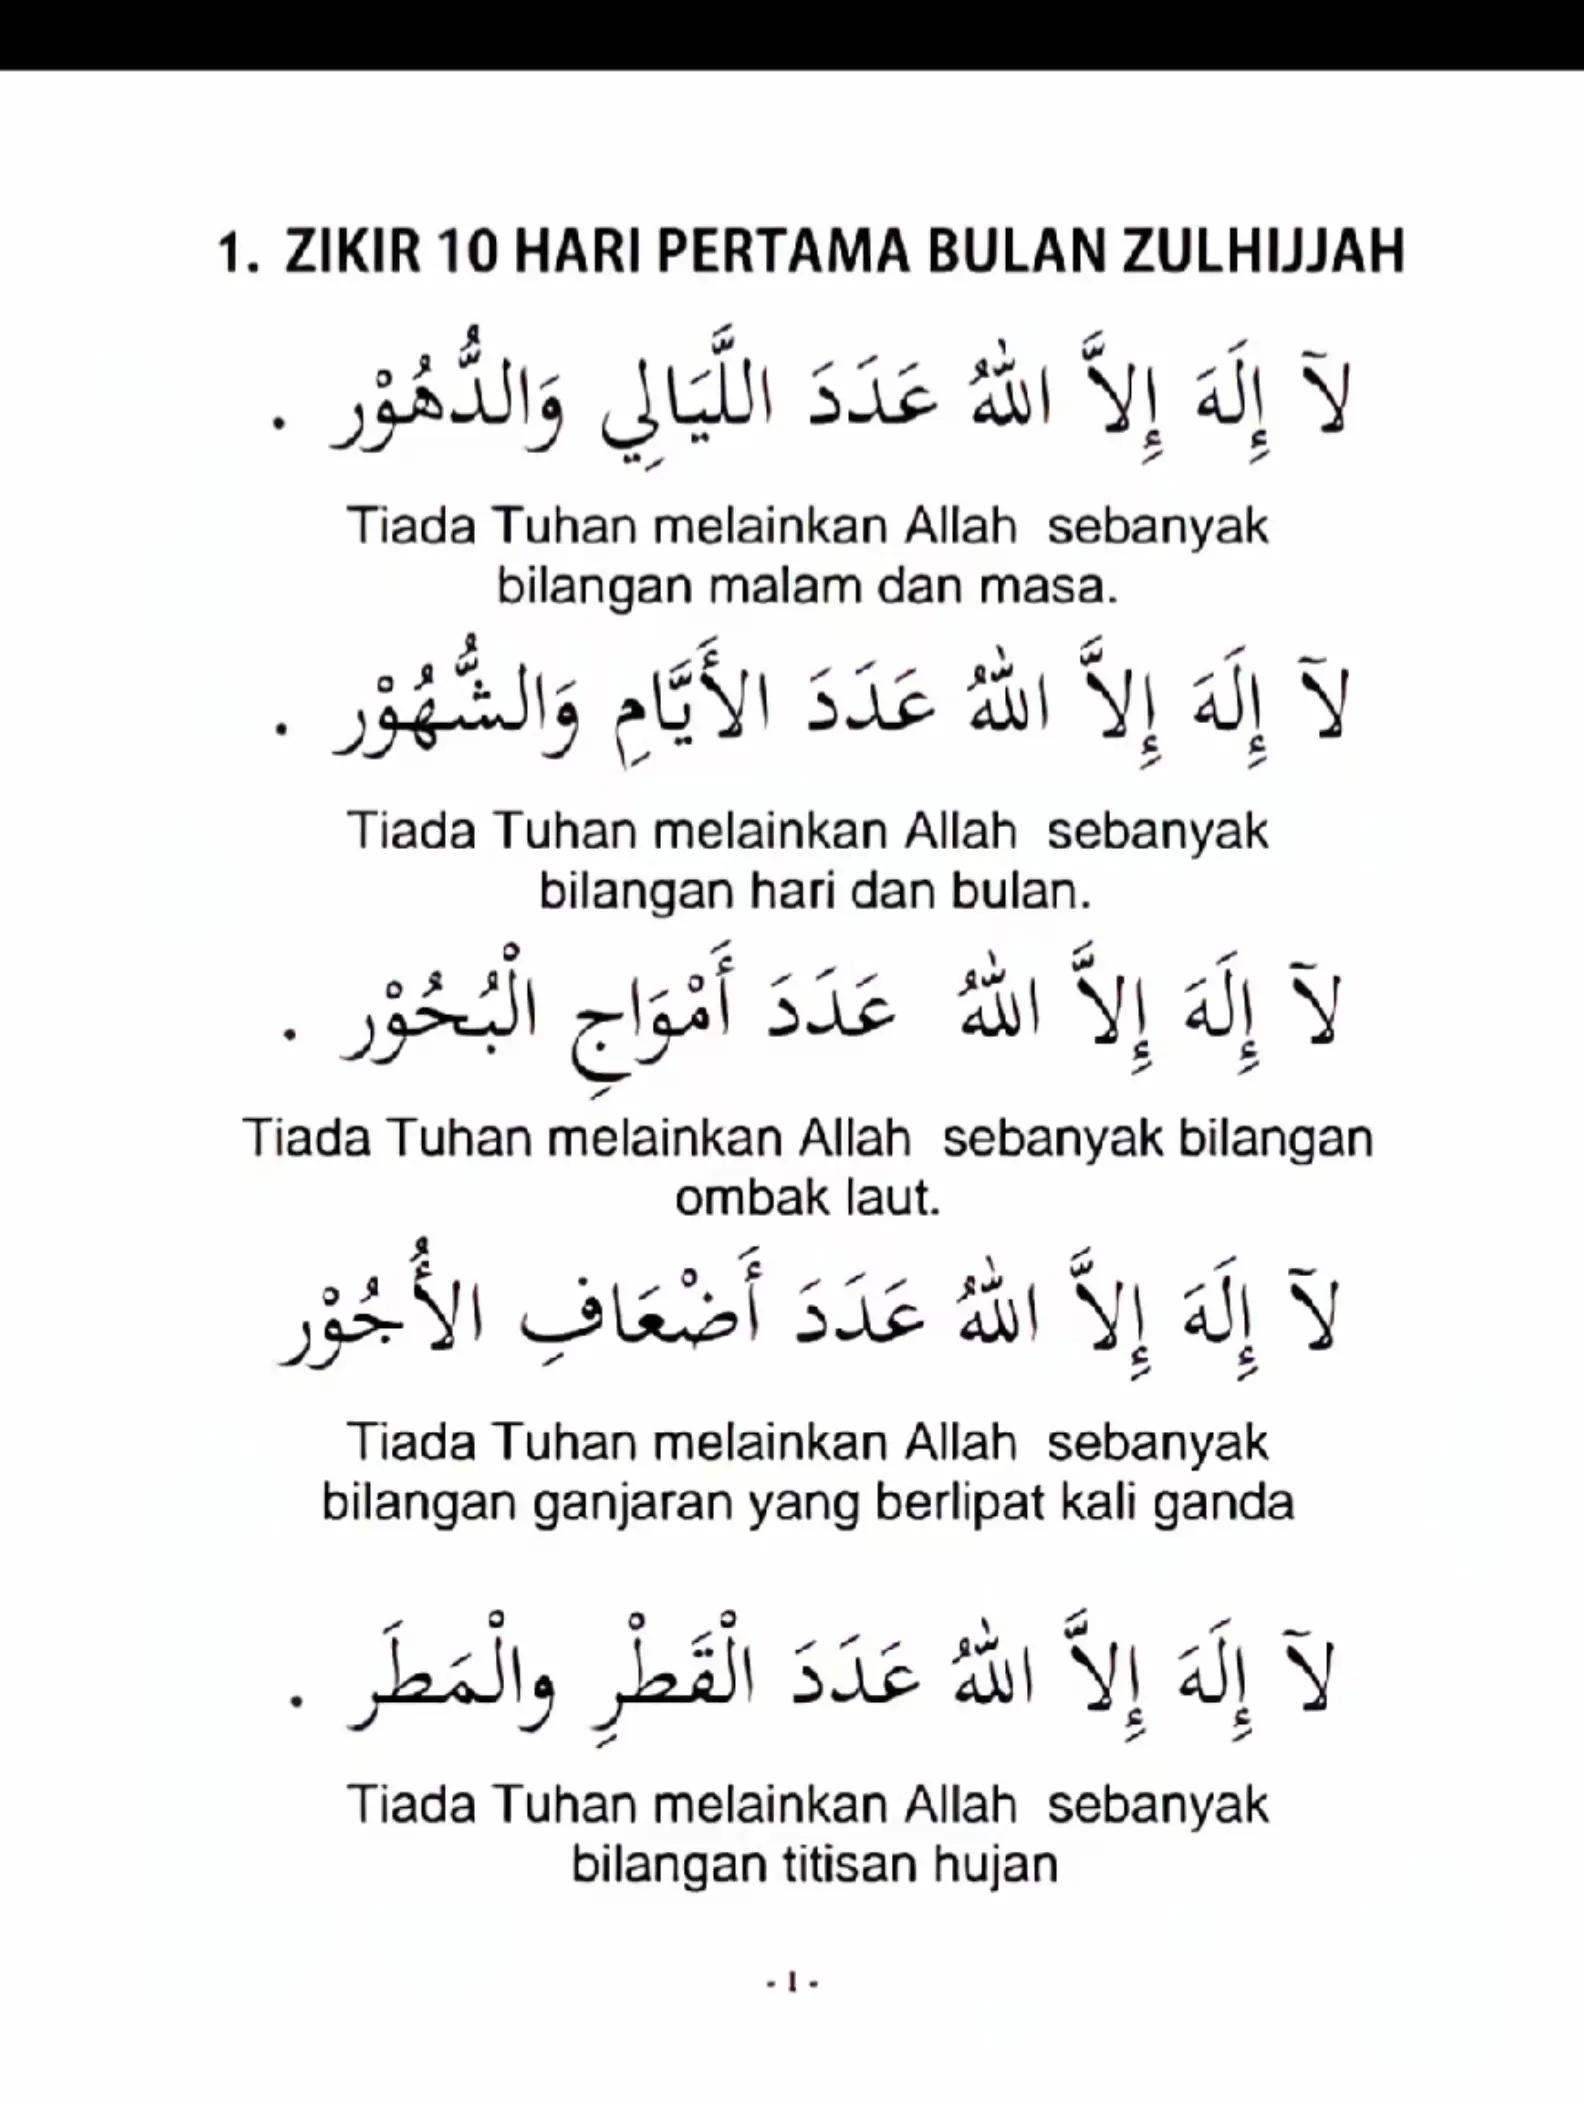 1. ZIKIR 10 HARI PERTAMA BULAN ZULHIJJAH
لآ إِلَهَ إِلاَّ اللهُ عَدَدَ اللَّيَالِي وَالدُّهُوْر .
Tiada Tuhan melainkan Allah sebanyak
bilangan malam dan masa.
لآ إِلَهَ إِلاَّ اللهُ عَدَدَ الأَيَّامِ وَالشُّهُوْر .
Tiada Tuhan melainkan Allah sebanyak
bilangan hari dan bulan.
لآ إِلَهَ إِلاَّ اللهُ عَدَدَ أَمْوَاجِ الْبُحُوْر .
Tiada Tuhan melainkan Allah sebanyak bilangan
ombak laut.
لآ إِلَهَ إِلاَّ اللهُ عَدَدَ أَضْعَافِ الأُجُوْر
Tiada Tuhan melainkan Allah sebanyak
bilangan ganjaran yang berlipat kali ganda
لآ إِلَهَ إِلاَّ اللهُ عَدَدَ الْقَطْرِ والْمَطَر .
Tiada Tuhan melainkan Allah sebanyak
bilangan titisan hujan
- 1 -